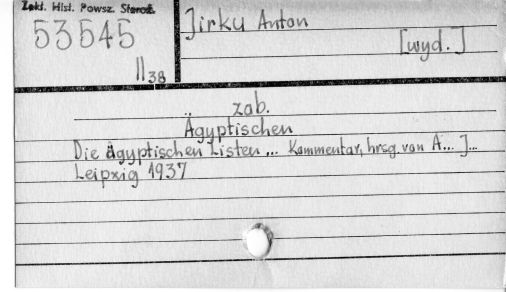 Zakł. Hist. Powsz. Staroż.
53545
II 38
Jirku Anton
[wyd.]
zob.
Ägyptischen
Die ägyptischen Listen ... Kommentar, hrsg. von A... J...
Leipzig 1937